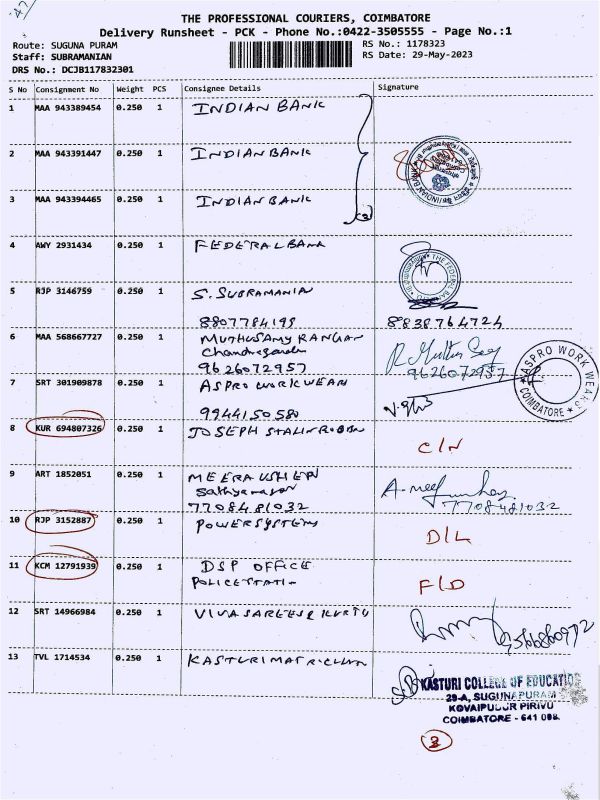 47
THE PROFESSIONAL COURIERS, COIMBATORE
Delivery Runsheet - PCK - Phone No.:0422-3505555 - Page No.:1
Route: SUGUNA PURAM
RS No.: 1178323
Staff: SUBRAMANIAN
RS Date: 29-May-2023
DRS No.: DCJB117832301
S No Consignment No Weight PCS Consignee Details Signature
1 MAA 943389454 0.250 1 INDIAN BANK
2 MAA 943391447 0.250 1 INDIAN BANK
3 MAA 943394465 0.250 1 INDIAN BANK
(3)
4 AWY 2931434 0.250 1 FEDERAL BANK
THE FEDERAL
5 RJP 3146759 0.250 1 S. SUBRAMANIAN
8807784199 8838764724
6 MAA 568667727 0.250 1 MUTHUSAMY RANGAN
9626072957 9626072957
7 SRT 301909878 0.250 1 ASPRO WORKWEAR
ASPRO WORK WEARS
COIMBATORE
9944150580
8 KUR 694807326 0.250 1 JOSEPH STALIN
C/N
9 ART 1852051 0.250 1 MEERA
7708481032 7708481032
10 RJP 3152887 0.250 1 POWER SYSTEMS
D/L
11 KCM 12791939 0.250 1 DSP OFFICE
POLICE
F/D
12 SRT 14966984 0.250 1
13 TVL 1714534 0.250 1 KASTURI
KASTURI COLLEGE OF EDUCATION
29-A, SUGUNAPURAM
KOVAIPUDUR PIRIVU
COIMBATORE - 641 008.
3